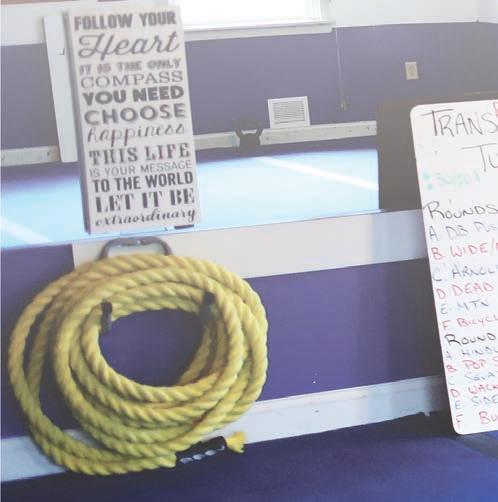 FOLLOW YOUR
Heart
IT IS THE ONLY
COMPASS
YOU NEED
CHOOSE
happiness
THIS LIFE
IS YOUR MESSAGE
TO THE WORLD
LET IT BE
extraordinary
TRANS
TU
ROUNDS
A. DB PUS
B. WIDE/
C. ARNOL
D. DEAD
E. MTN
F. BICYCL
ROUND
A. HINDU
B. POP S
C. SQUA
D. WALK
E. SIDE
F. BU